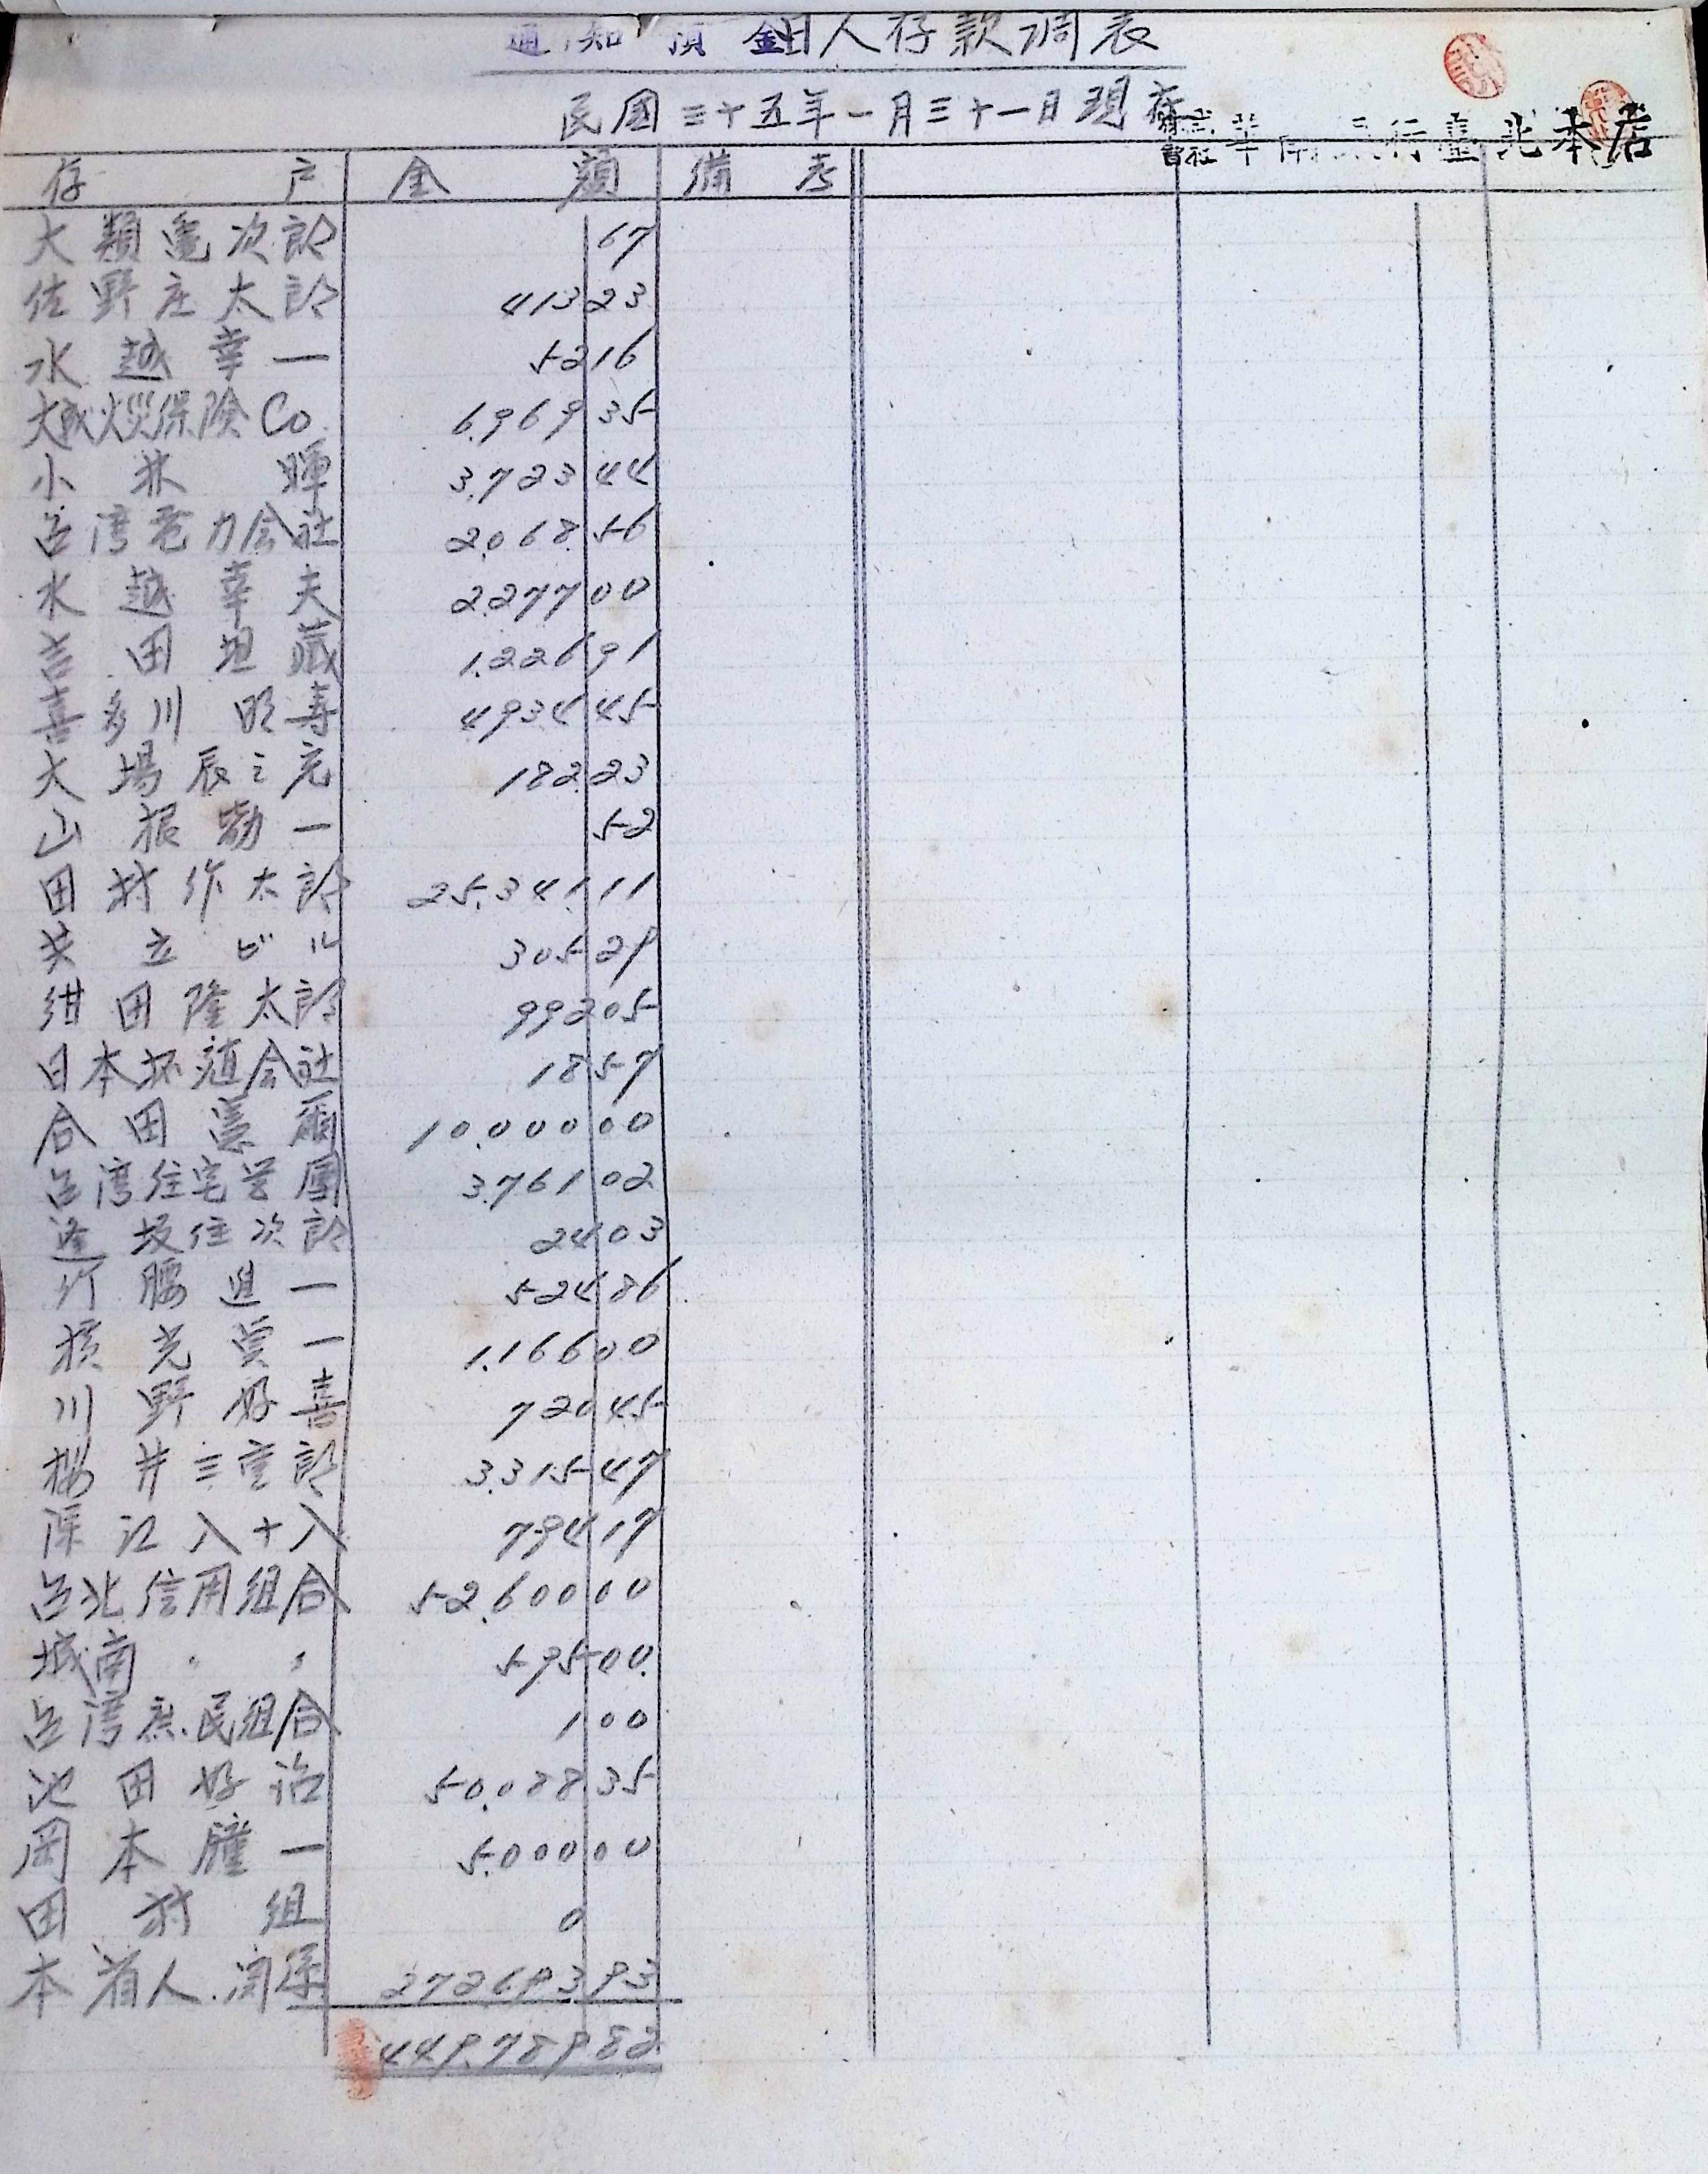 通知預金日人存款調表
民國三十五年一月三十一日現在
株式會社華南銀行臺北本店
存戶 金額 備考
大類亀次郎 67
佐野庄太郎 413 23
水越幸一 52 16
大成火災保険Co. 6,969 35
小林暉 3,723 44
台湾電力会社 2,068 56
水越幸夫 2,277 00
吉田坦蔵 1,226 91
喜多川明寿 4934 45
大場辰之允 182 23
山根勘一 52
田村作太郎 25,341 11
共立ビル 305 29
紺田隆太郎 992 05
日本拓殖会社 18 57
合田 10,000 00
台湾住宅営團 3,761 02
逢坂佳次郎 24 03
竹腰進一 524 86
横光 一 1,166 00
川野好喜 720 45
桜井三重郎 3,315 47
深江八十八 794 17
台北信用組合 52,600 00
城南〃〃 595 00
台湾庶民組合 1 00
池田好治 50,088 35
岡本 一 5,000 00
田村組 0
本省人関係 272,693 93
449,789 82